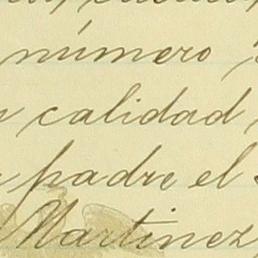 número
calidad
padre el
Martinez